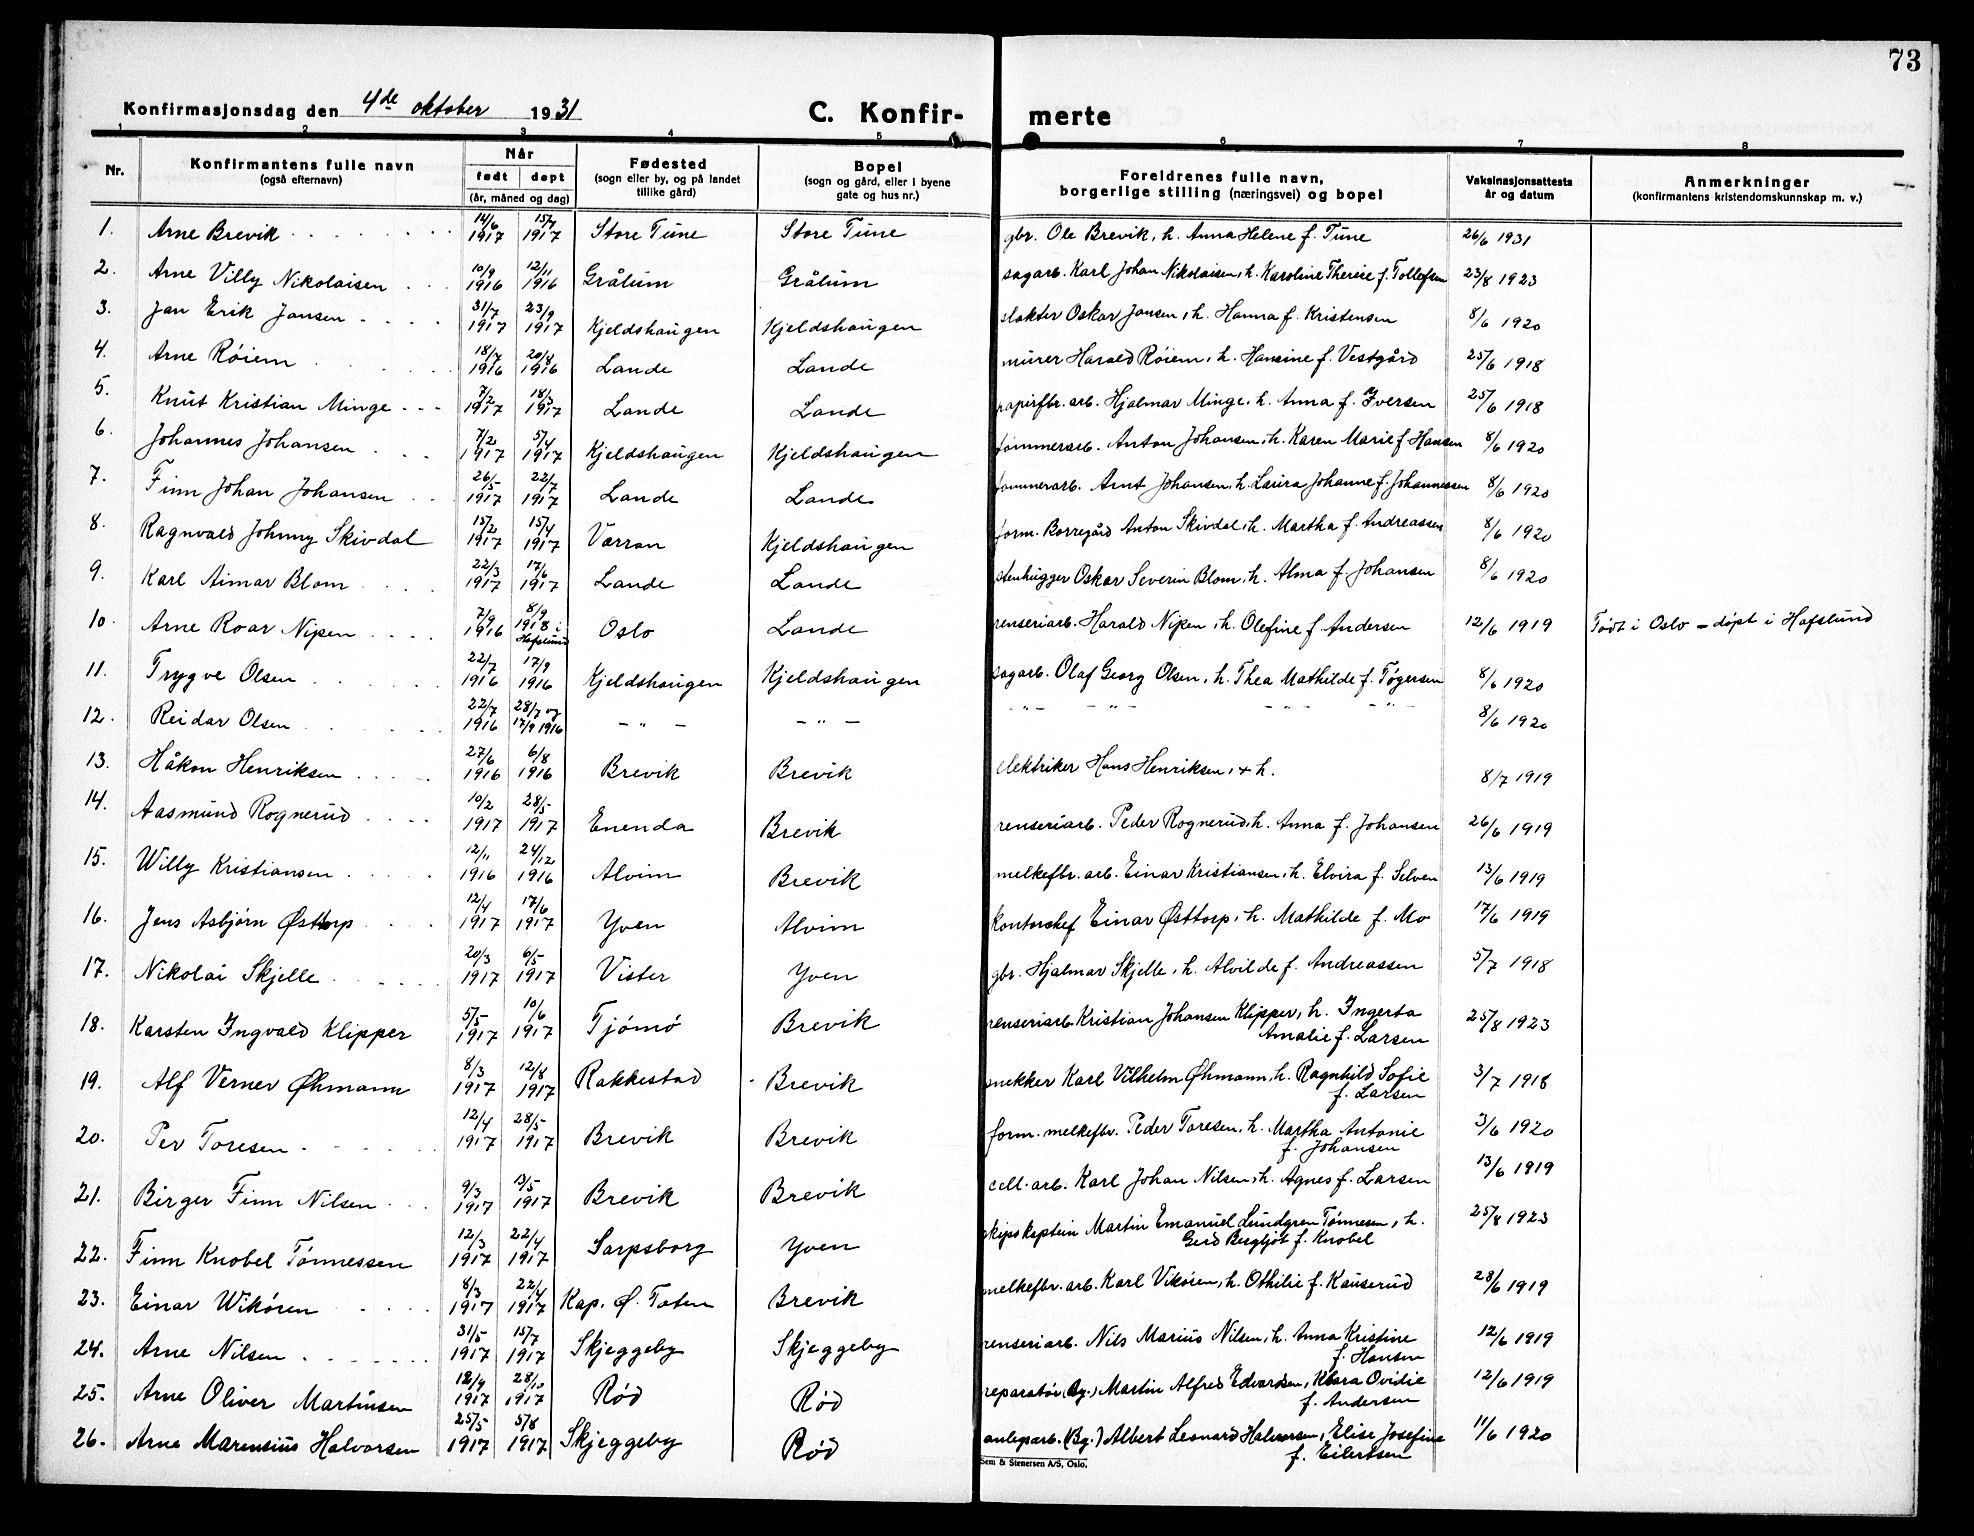 73
Konfirmasjonsdag den 4de oktober 1931 C. Konfir- merte
1 2 3 4 5 6 7 8
Nr. Konfirmantens fulle navn (også efternavn) Når født døpt (år, måned og dag) Fødested (sogn eller by, og på landet tillike gård) Bopel (sogn og gård, eller i byene gate og hus nr.) Foreldrenes fulle navn, borgerlige stilling (næringsvei) og bopel Vaksinasjonsattests år og datum Anmerkninger (konfirmantens kristendomskunnskap m. v.)
1. Arne Brevik 14/6 1917 15/7 1917 Store Tune Store Tune gbr. Ole Brevik, h. Anna Helene f. Tune 26/6 1931
2. Arne Villy Nikolaisen 10/9 1916 12/11 1916 Grålum Grålum sagarb. Karl Johan Nikolaisen, h. Karoline Therese f. Tollefsen 23/8 1923
3. Jan Erik Jansen 31/7 1917 23/9 1917 Kjeldshaugen Kjeldshaugen slakter Oskar Jansen, h. Hanna f. Kristensen 8/6 1920
4. Arne Röiem 18/7 1916 20/8 1916 Lande Lande murer Harald Röiem, h. Hansine f. Vestgård 25/6 1918
5. Knut Kristian Minge 7/2 1917 18/3 1917 Lande Lande papirfbr. arb. Hjalmar Minge, h. Anna f. Iversen 25/6 1918
6. Johannes Johansen 7/2 1917 5/4 1917 Kjeldshaugen Kjeldshaugen tømmerarb. Anton Johansen, h. Karen Marie f. Hansen 8/6 1920
7. Finn Johan Johansen 26/5 1917 22/7 1917 Lande Lande tømmerarb. Arnt Johansen, h. Laura Johanne f. Johannessen 8/6 1920
8. Ragnvald Johnny Skivdal 15/2 1917 15/4 1917 Varran Kjeldshaugen form. Borregård Anton Skivdal, h. Martha f. Andreassen 8/6 1920
9. Karl Aimar Blom 22/3 1917 17/6 1917 Lande Lande stenhugger Oskar Severin Blom, h. Alma f. Johansen 8/6 1920
10. Arne Roar Nipen 7/9 1916 8/9 1918 i Hafslund Oslo Lande renseriarb. Harald Nipen, h. Olefine f. Andersen 12/6 1919 Født i Oslo – døpt i Hafslund
11. Trygve Olsen 22/7 1916 17/9 1916 Kjeldshaugen Kjeldshaugen sagarb. Olaf Georg Olsen, h. Thea Mathilde f. Tøgersen 8/6 1920
12. Reidar Olsen 22/7 1916 28/7 og 17/9 1916 – " – – " – – " – – " – – " – – " – 8/6 1920
13. Håkon Henriksen 27/6 1916 6/8 1916 Brevik Brevik elektriker Hans Henriksen, + h. 8/7 1919
14. Aasmund Rognerud 10/2 1917 28/5 1917 Enenda Brevik renseriarb. Peder Rognerud, h. Anna f. Johansen 26/6 1919
15. Willy Kristiansen 12/11 1916 24/12 1916 Alvim Brevik melkefbr. arb. Einar Kristiansen, h. Elvira f. Selven 13/6 1919
16. Jens Asbjørn Østtorp 12/4 1917 17/6 1917 Yven Alvim kontorchef Einar Østtorp, h. Mathilde f. Mo 17/6 1919
17. Nikolai Skjelle 20/3 1917 6/5 1917 Vister Yven gbr. Hjalmar Skjelle, h. Alvilde f. Andreassen 5/7 1918
18. Karsten Ingvald Klipper 5/5 1917 10/6 1917 Tjømø Brevik renseriarb. Kristian Johansen Klipper, h. Ingerta Amalie f. Larsen 25/8 1923
19. Alf Verner Øhmann 8/3 1917 12/8 1917 Rakkestad Brevik snekker Karl Vilhelm Øhmann, h. Ragnhild Sofie f. Larsen 3/7 1918
20. Per Toresen 12/4 1917 28/5 1917 Brevik Brevik form. melkefbr. Peder Toresen, h. Martha Antonie f. Johansen 3/6 1920
21. Birger Finn Nilsen 9/3 1917 13/5 1917 Brevik Brevik cell. arb. Karl Johan Nilsen, h. Agnes f. Larsen 13/6 1919
22. Finn Knobel Tønnessen 12/3 1917 22/4 1917 Sarpsborg Yven skipskaptein Martin Emanuel Lundgren Tønnesen, h. Gerd Bergljot f. Knobel 25/8 1923
23. Einar Wikören 8/3 1917 22/4 1917 Kap. Ø. Toten Brevik melkefbr. arb. Karl Vikören, h. Othilie f. Kauserud 28/6 1919
24. Arne Nilsen 31/5 1917 15/7 1917 Skjeggeby Skjeggeby renseriarb. Nils Marius Nilsen, h. Anna Kristine f. Hansen 12/6 1919
25. Arne Oliver Martinsen 12/9 1917 28/10 1917 Rød Rød reparatør (By.) Martin Alfred Edvardsen, Klara Ovidie f. Andersen 12/6 1919
26. Arne Marensius Halvorsen 25/5 1917 5/8 1917 Skjeggeby Rød anleparb. (By.) Albert Leonard Halvorsen, Elise Josefine f. Eilertsen 11/6 1920
Sem & Stenersen A/S, Oslo.